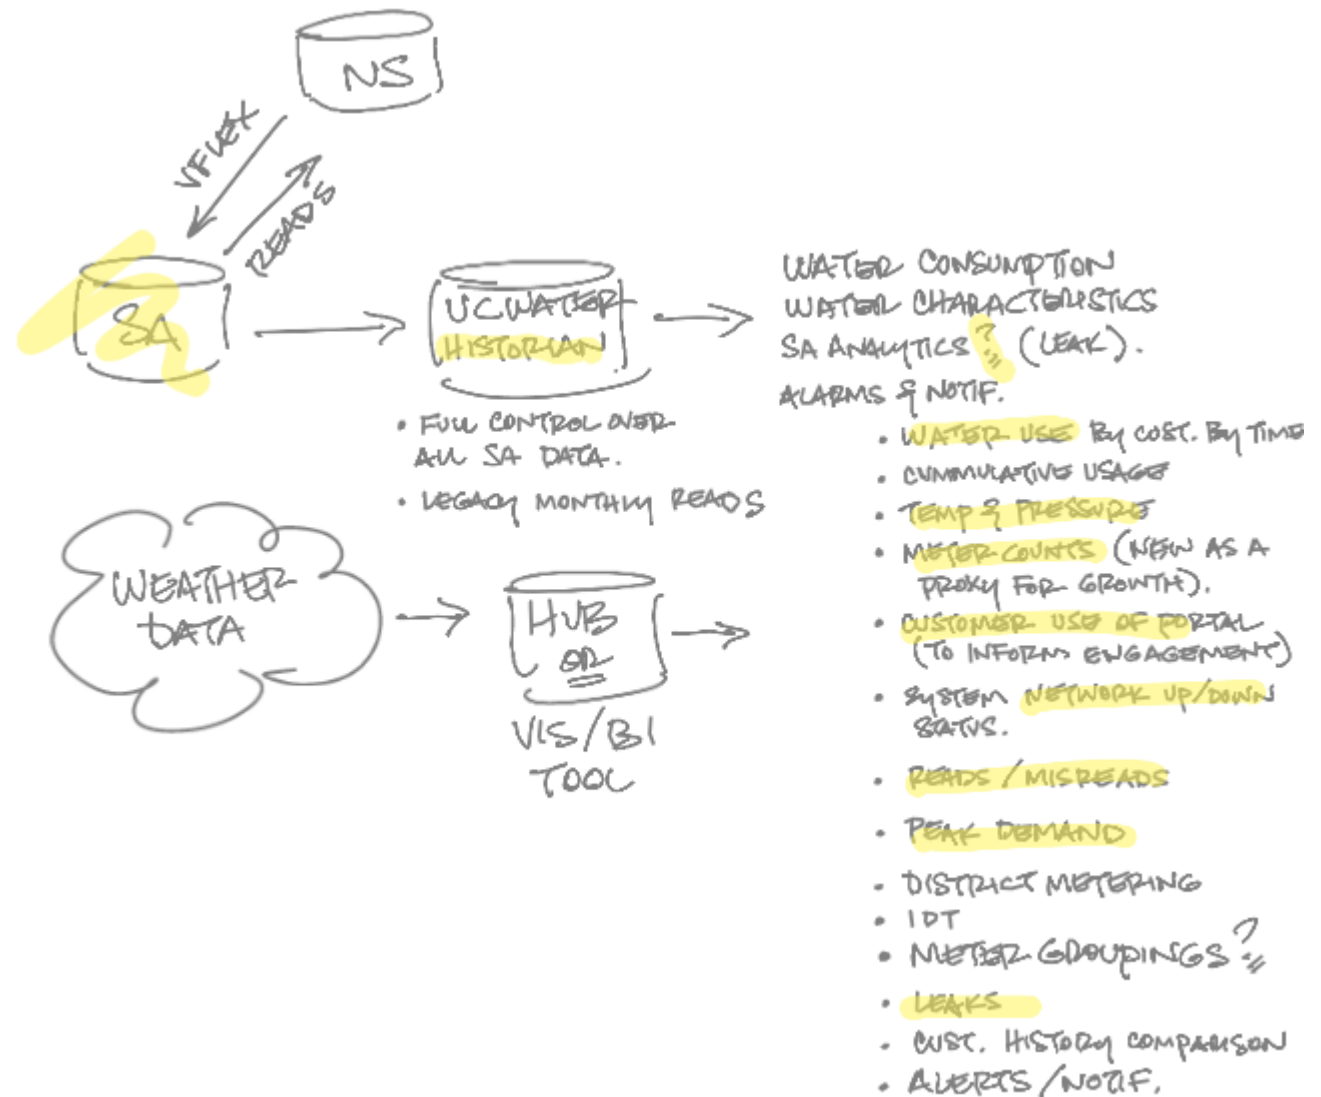 NS
VFLEX
READS
SA
UCWATER
HISTORIAN
• FULL CONTROL OVER
ALL SA DATA.
• LEGACY MONTHLY READS
WEATHER
DATA
HUB
OR
VIS/BI
TOOL
WATER CONSUMPTION
WATER CHARACTERISTICS
SA ANALYTICS ? (LEAK).
ALARMS & NOTIF.
• WATER USE BY CUST. BY TIME
• CUMMULATIVE USAGE
• TEMP & PRESSURE
• METER COUNTS (NEW AS A
PROXY FOR GROWTH).
• CUSTOMER USE OF PORTAL
(TO INFORM ENGAGEMENT)
• SYSTEM NETWORK UP/DOWN
STATUS.
• READS / MISREADS
• PEAK DEMAND
• DISTRICT METERING
• IDT
• METER GROUPINGS ?
• LEAKS
• CUST. HISTORY COMPARISON
• ALERTS / NOTIF.